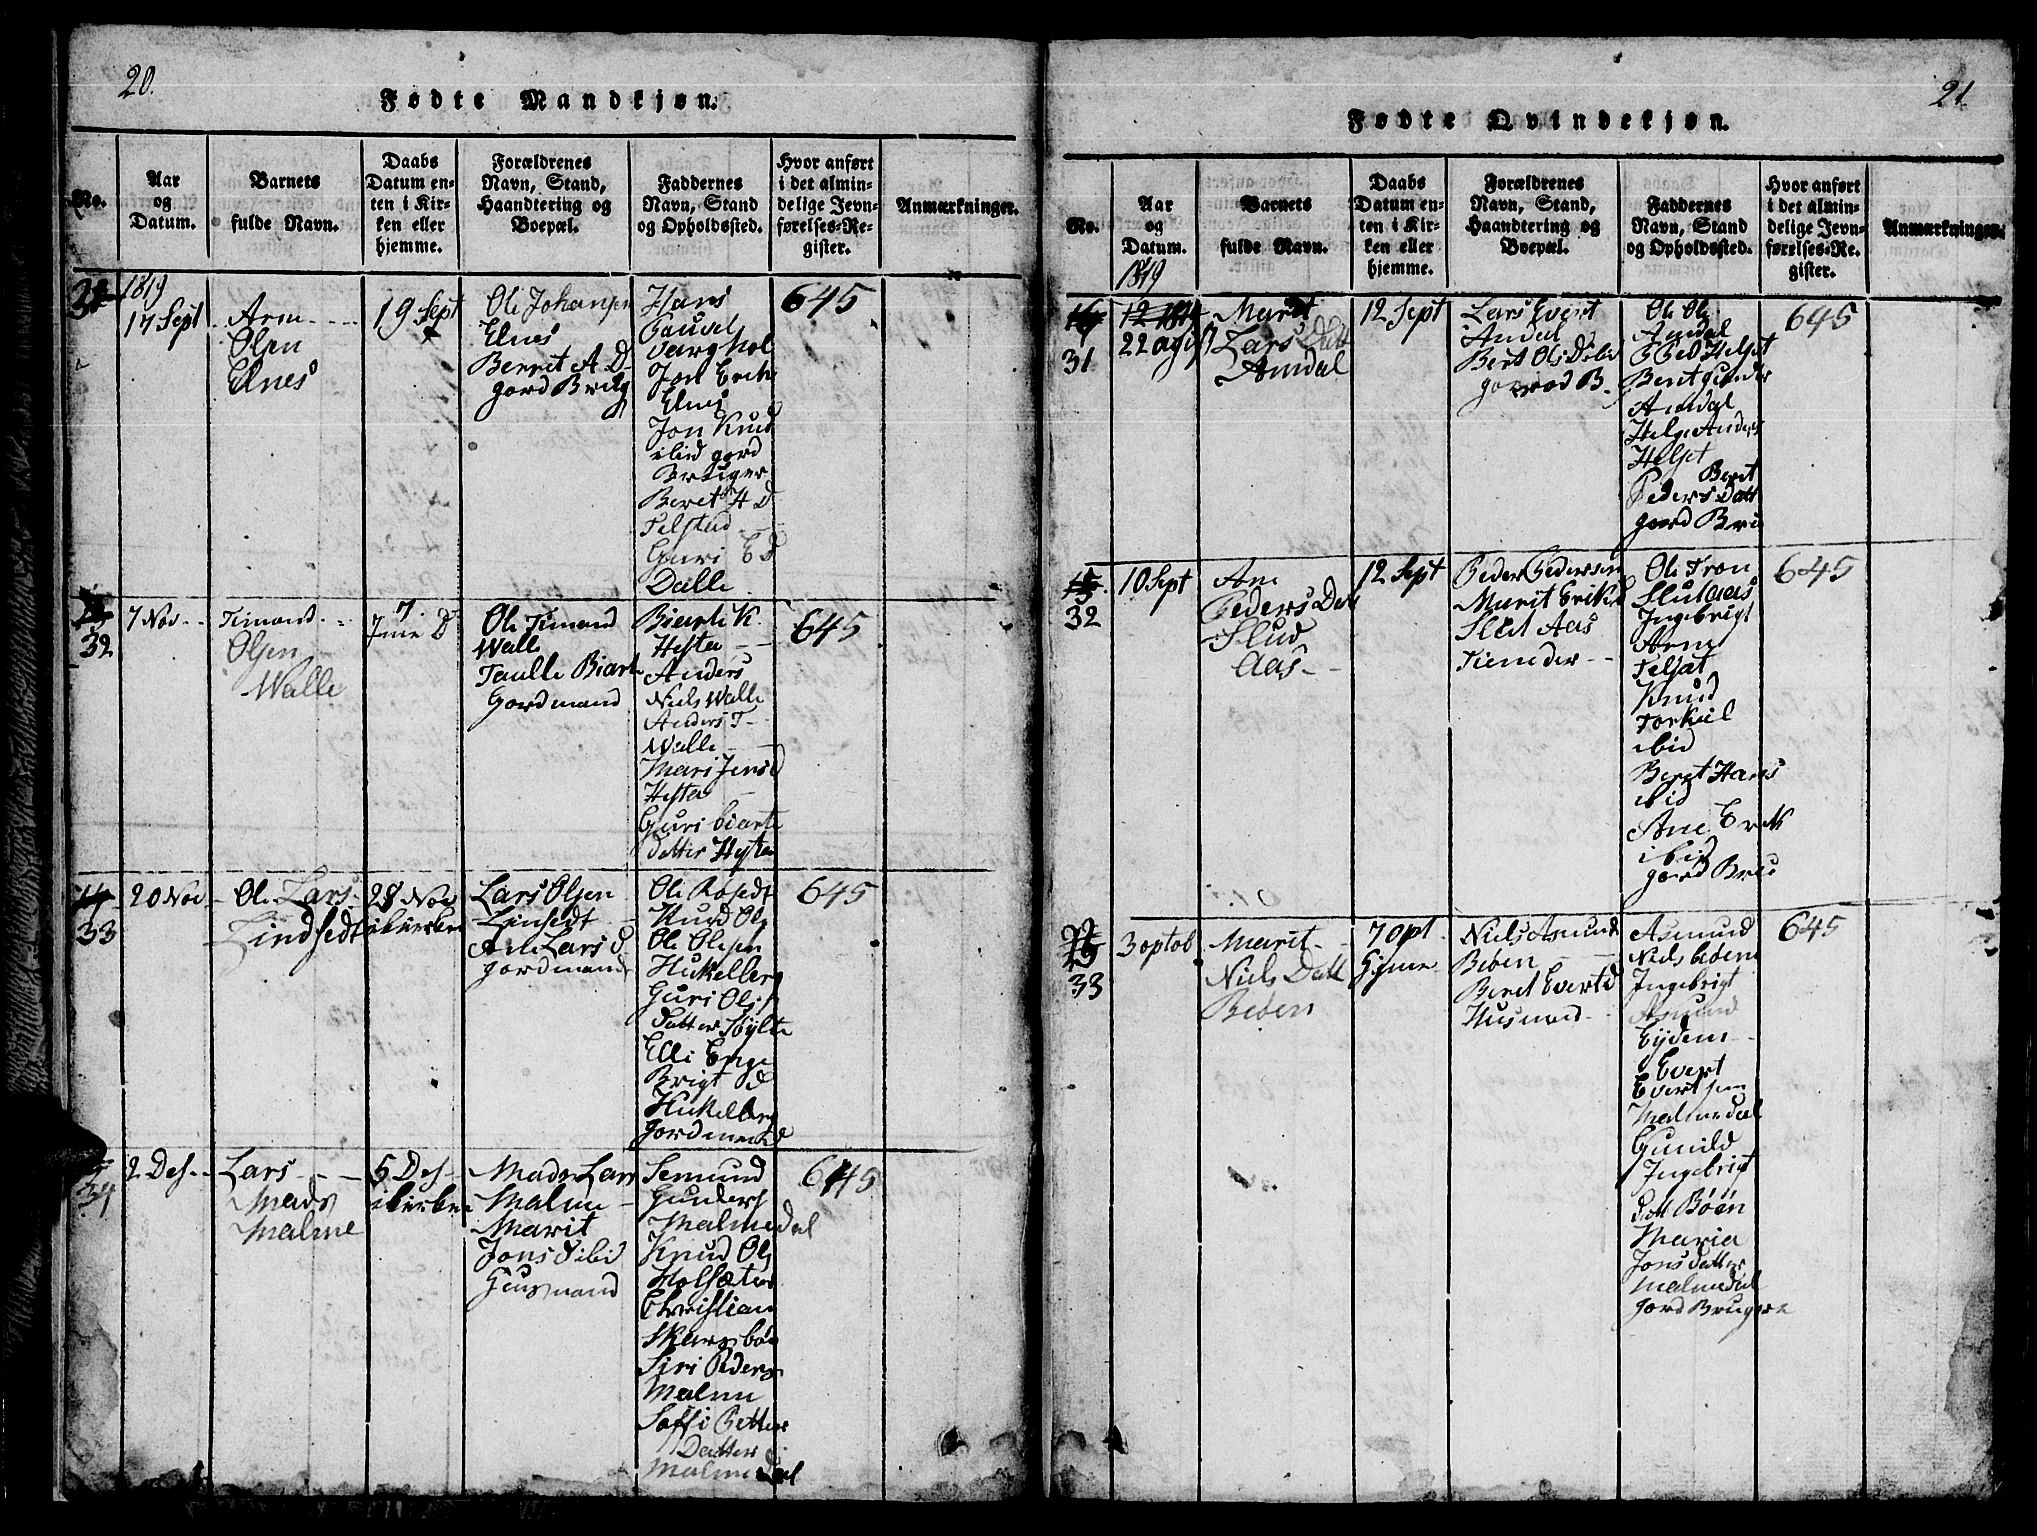 20.
Fødte Mandkjøn.
No.
Aar
og
Datum.
Barnets
fulde Navn.
Daabs
Datum en-
ten i Kir-
ken eller
hjemme.
Forældrenes
Navn, Stand,
Haandtering og
Boepæl.
Faddernes
Navn, Stand
og Opholdssted.
Hvor anført
i det almin-
delige Jevn-
førelses-Re-
gister.
Anmærkninger.
1819
17 Sept
Arn
Olsen
Elnes
19 Sept
Ole Johansen
Elnes
Berret A D
gord Brug
Hans
Jon Erik
Elnes
Jon Knud
ibid gord
Bruger
Beret H D
Telstad
Guri E D
Dalle
645
32
7 Nov
Timand
Olsen
Walle
7.
Ole Timand
Walle
Taulle Biart
Gordmand
Biarte K.
Hesta
Anders
Niels Walle
Anders T
Walle
Mari Jens d
Hesta
Guri biarte
datter Hesta
645
33
20 Nov
Ole Lars
Lindsedt
28 Nov
i kirken
Lars Olsen
Linsedt
Lars d
gordmand
Ole Rosedt
Knud Ols
Ole Olsen
Hukelberg
Guri Ols
datter Sylte
Elli Enge
Brigt d
Hukelberg
gordmand
645
34
2 Des
Lars
Mads
Malme
5 Des
i kirken
Mads Lars
Malme
Marit
Jons d ibid
Husmand
Semund
Gunders
Malmedal
Knud Ols
Holsæter
Christian
Skarsbøe
Siri Peders
Malme
Soffi Petter
Datter
Malmedal
645
21
Fødte Qvindekjøn.
No.
Aar
og
Datum.
Barnets
fulde Navn.
Daabs
Datum en-
ten i Kir-
ken eller
hjemme.
Forældrenes
Navn, Stand,
Haandtering og
Boepæl.
Faddernes
Navn, Stand
og Opholdssted.
Hvor anført
i det almin-
delige Jevn-
førelses-Re-
gister.
Anmærkninger.
1819
31
22 agust
Marit
Lars Datt
Amdal
12 Sept
Lars Evert
Amdal
Berit Ols D ibid
Ole Ols
Amdal
Helset
Berit gunder
Amdal
Helge Anders
Helset
Beret
Peders Datt
gord Bru
645
32
10 Sept
Ane
Peders Datt
Slud
Aas
12 Sept
Peder Pedersen
Marit Erik d
Slut Aas
Tieneder
Ole Tron
Slutaas
Ingebrigt
Arne
Telsat
Knud
Torkel
ibid
Beret Hans
ibid
Ane Erik
ibid
gord Bru
645
33
3 optob
Marit
Niels Datt
Bøen
7 opt
Niels Asmund
Bøen
Beret Evert d
Husmand
Asmund
Niels bøen
Ingebrigt
Asmund
Eydem
Evert
Evertsen
Malmedal
Gunild
Ingebrigt
datt Bøen
Maria
Jonsdatter
Malmedal
gord Brugere
645